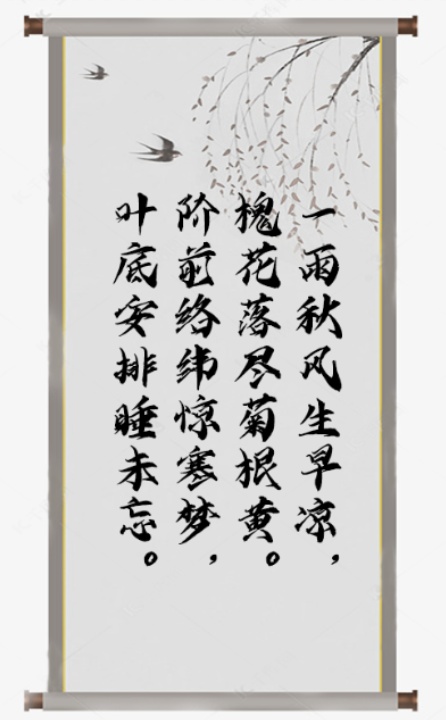 一雨秋风生早凉，
槐花落尽菊根黄。
阶前络纬惊寒梦，
叶底安排睡未忘。